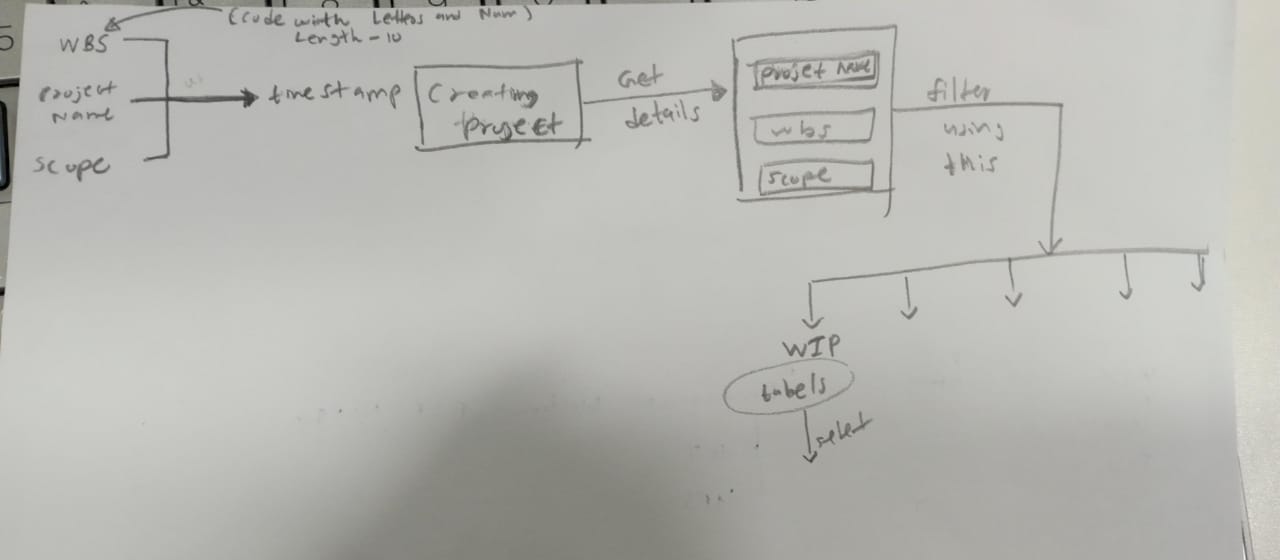 (Code with Letters and Num)
Length - 10
WBS
Project
Name
Scope
timestamp
Creating
Project
Get
details
Projet Name
wbs
Scope
filter
using
this
WIP
labels
select